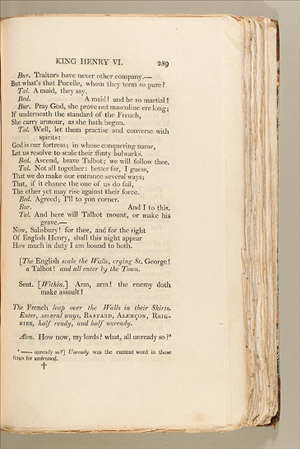 KING HENRY VI. 289
Bur. Traitors have never other company.—
But what's that Pucelle, whom they term so pure?
Tal. A maid, they say.
Bed. A maid! and be so martial!
Bur. Pray God, she prove not masculine ere long;
If underneath the standard of the French,
She carry armour, as she hath begun.
Tal. Well, let them practise and converse with
spirits:
God is our fortress; in whose conquering name,
Let us resolve to scale their flinty bulwarks.
Bed. Ascend, brave Talbot; we will follow thee.
Tal. Not all together: better far, I guess,
That we do make our entrance several ways;
That, if it chance the one of us do fail,
The other yet may rise against their force.
Bed. Agreed; I'll to yon corner.
Bur. And I to this.
Tal. And here will Talbot mount, or make his
grave.—
Now, Salisbury! for thee, and for the right
Of English Henry, shall this night appear
How much in duty I am bound to both.
[The English scale the Walls, crying St. George!
a Talbot! and all enter by the Town.
Sent. [Within.] Arm, arm! the enemy doth
make assault!
The French leap over the Walls in their Shirts.
Enter, several ways, BASTARD, ALENÇON, REIG-
NIER, half ready, and half unready.
Alen. How now, my lords? what, all unready so?⁴
⁴ —— unready so?] Unready was the current word in those
times for undressed.
†